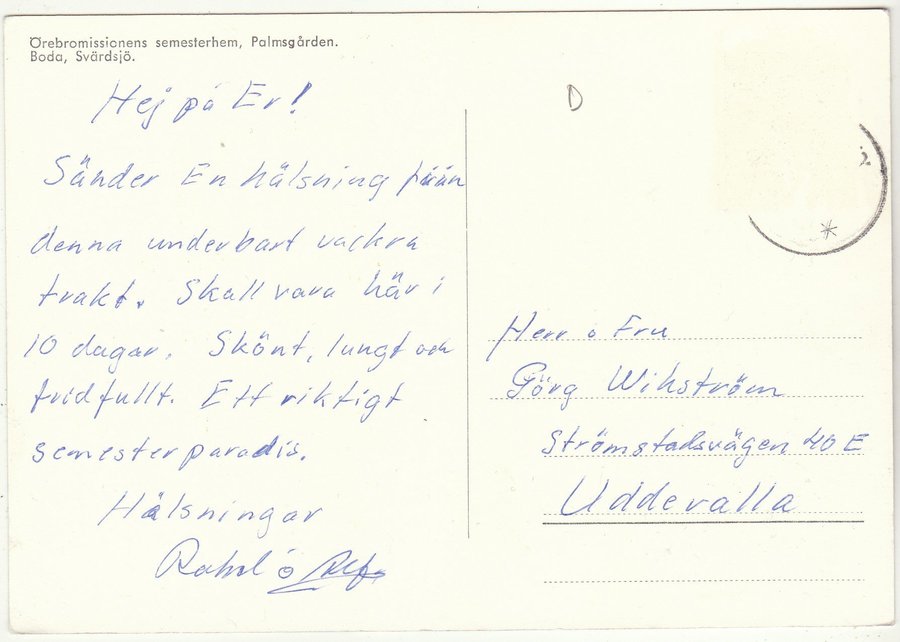 Örebromissionens semesterhem, Palmsgården.
Boda, Svärdsjö.
Hej på Er!
Sänder En hälsning från
denna underbart vackra
trakt. Skall vara här i
10 dagar. Skönt, lungt och
fridfullt. Ett riktigt
semesterparadis.
Hälsningar
ó
D
2
Herr o Fru
Görg Wihström
Strömstadsvägen 40 E
Uddevalla